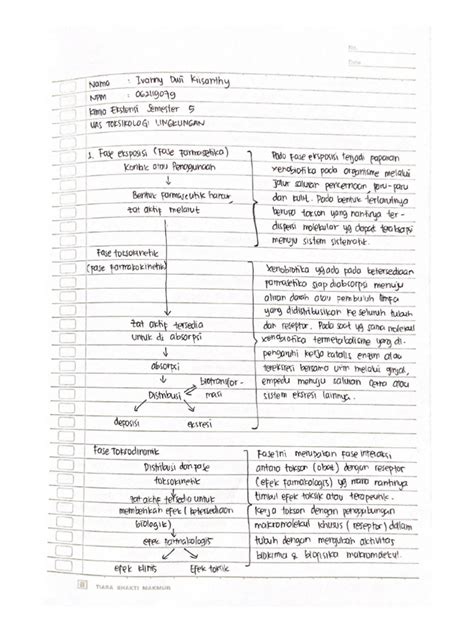 No.
Date
Nama : Ivanny Dwi Krisanthy
NPM : 062119079
Kimia Ekstensi Semester 5
UAS TOKSIKOLOGI LINGKUNGAN
1. Fase eksposisi (Fase farmasetika)
Kontak atau Penggunaan
Bentuk farmaseutik hancur
zat aktif melarut
Pada fase eksposisi terjadi paparan
xenobiotika pada organisme melalui
jalur saluran pencernaan, paru-paru
dan kulit. Pada bentuk terlarutnya
berupa tokson yang nantinya ter-
dispersi molekular yg dapat terabsorpsi
menuju sistem sistematik.
Fase toksokinetik
(fase farmakokinetik)
zat aktif tersedia
untuk di absorpsi
absorpsi
Distribusi
biotransfor-
masi
deposisi
eksresi
xenobiotika yg ada pada ketersediaan
farmasetika siap diabsorpsi menuju
aliran darah atau pembuluh limfa
yang didistribusikan ke seluruh tubuh
dan reseptor. Pada saat yg sama molekul
xenobiotika termetabolisme yang di-
pengaruhi kerja katalis enzim atau
terekskresi bersama urin melalui ginjal,
empedu menuju saluran cerna atau
sistem eksresi lainnya.
Fase Toksodinamik
Distribusi dan fase
toksokinetik
zat aktif tersedia untuk
memberikan efek (ketersediaan
biologik)
efek farmakologis
efek klinis
Efek toksik
Fase ini merupakan fase interaksi
antara tokson (obat) dengan reseptor
(efek farmakologis) yg mana nantinya
timbul efek toksik atau terapeutik.
Kerja tokson dengan penggabungan
makromolekul khusus (reseptor) dalam
tubuh dengan mengubah aktivitas
biokimia & biofisika makromolekul.
TIARA BHAKTI MAKMUR